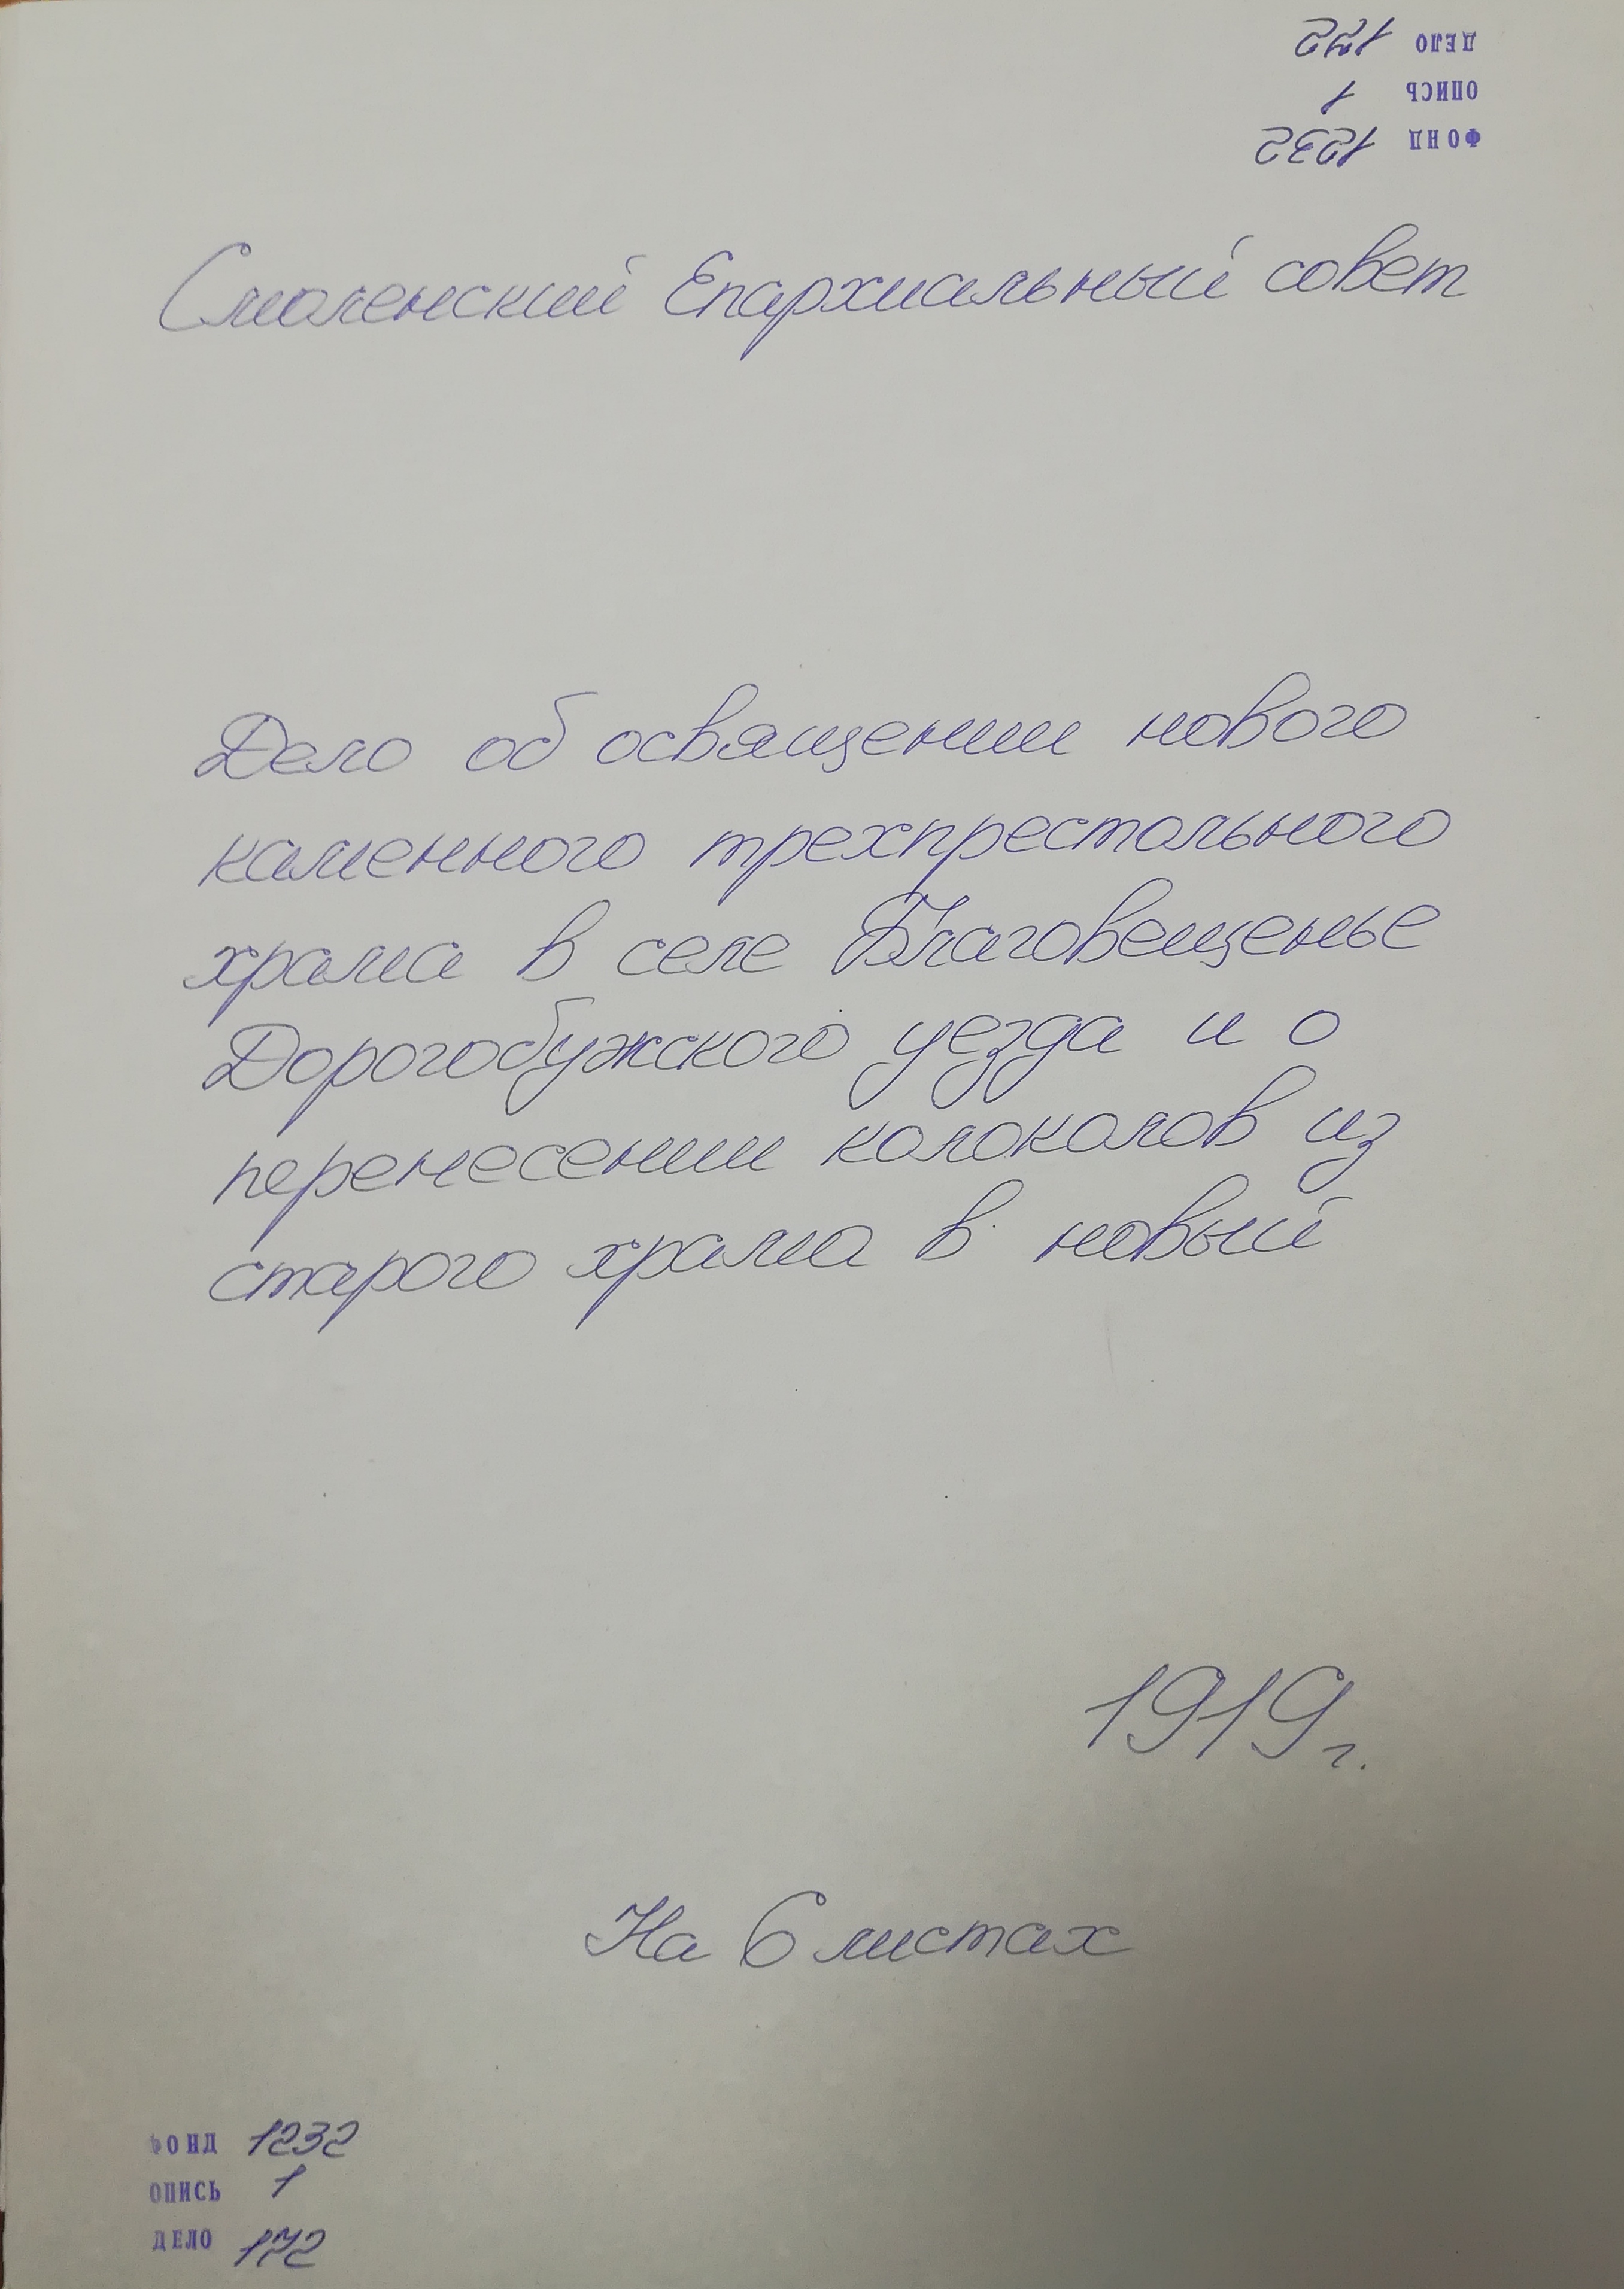 ДЕЛО 172
ОПИСЬ 1
ФОНД 1232
Смоленский Епархиальный совет
Дело об освящении нового
каменного трехпрестольного
храма в селе Благовещенье
Дорогобужского уезда и о
перенесении колоколов из
старого храма в новый
1919 г.
На 6 листах
ФОНД 1232
ОПИСЬ 1
ДЕЛО 172